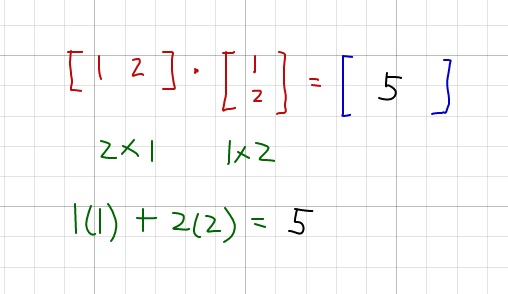 [ 1 2 ] · [ 1 2 ] = [ 5 ]
2×1 1×2
1(1) + 2(2) = 5